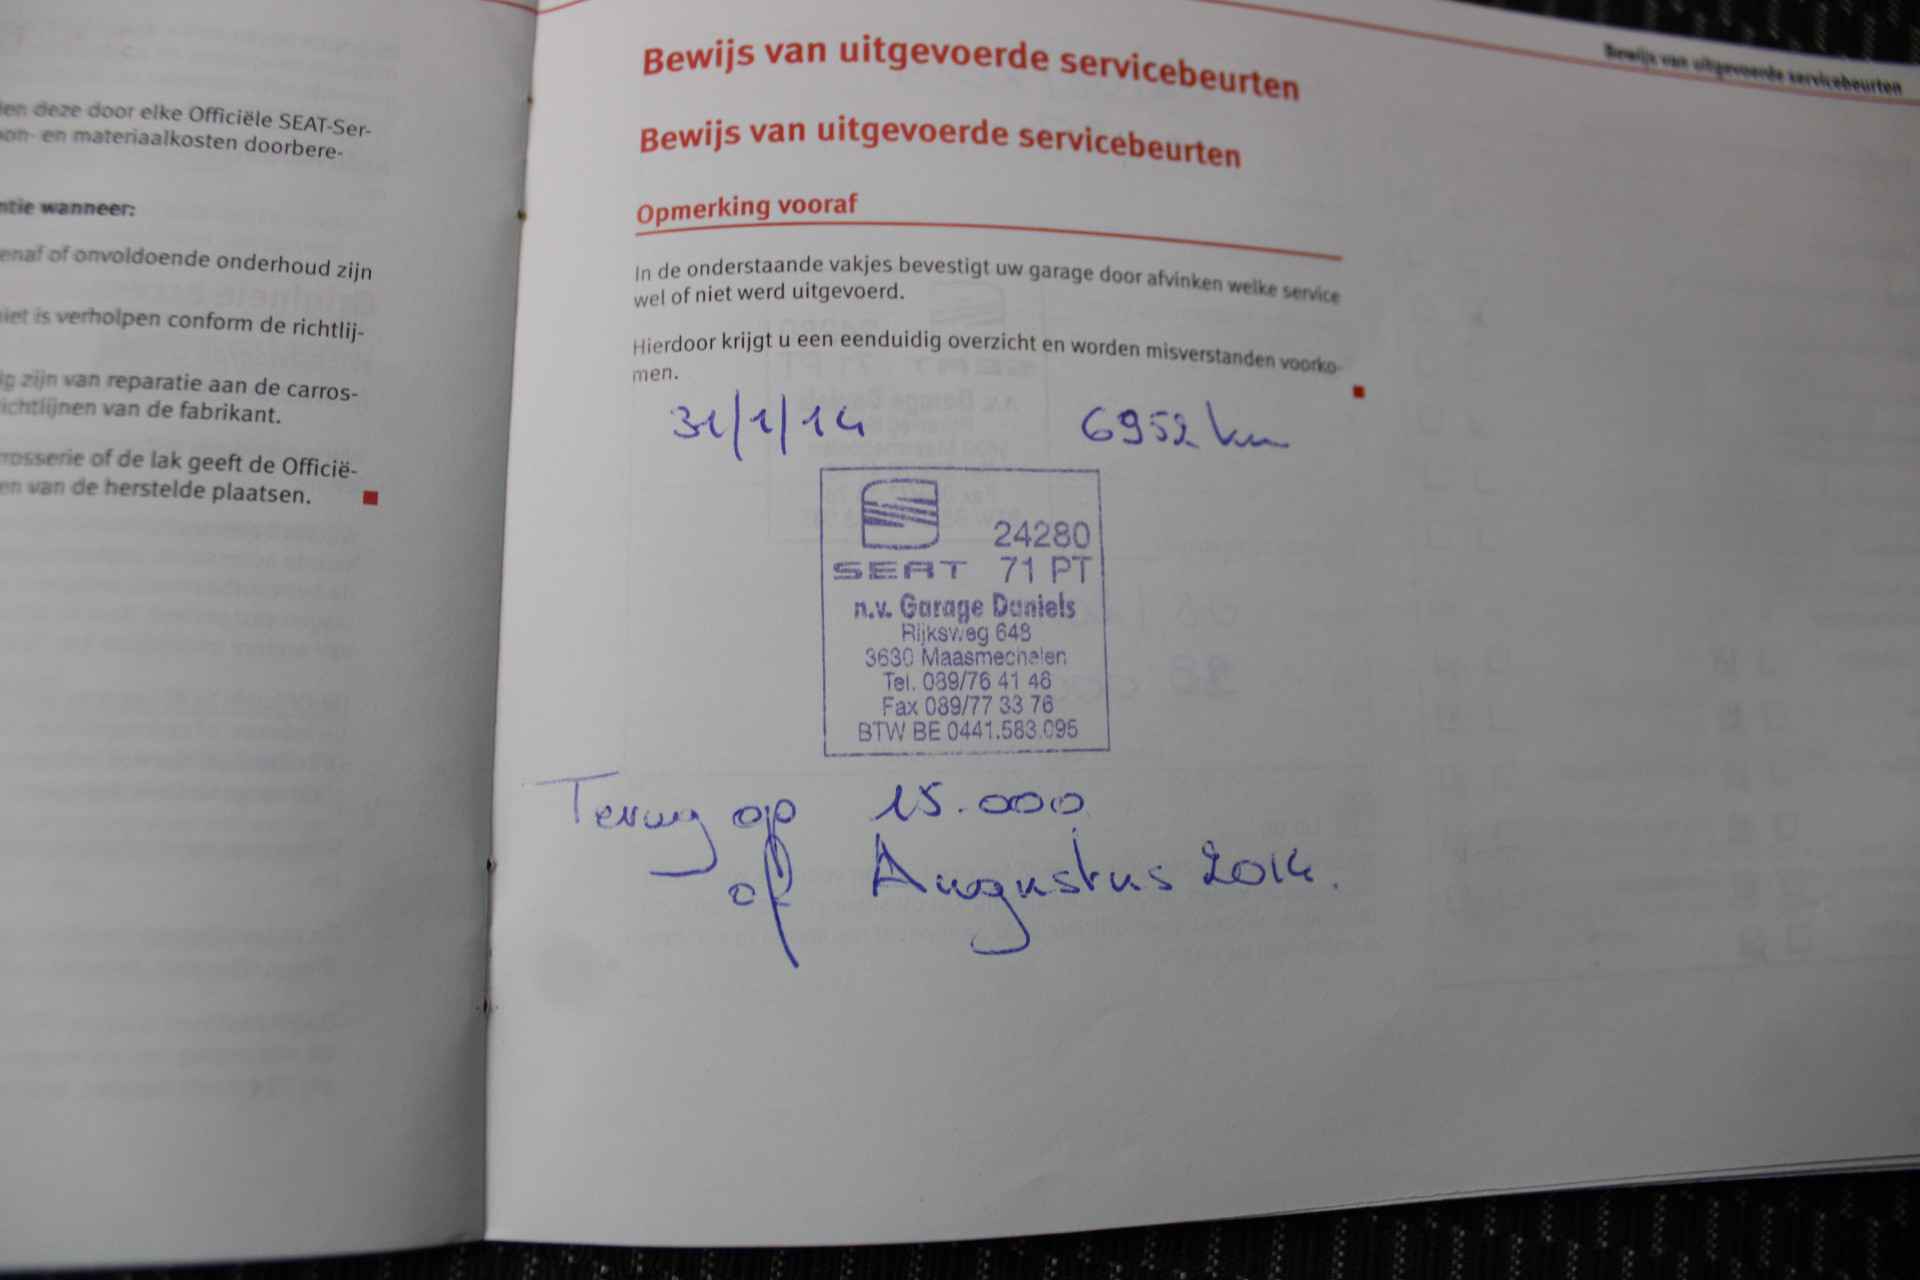 deze door elke Officiële SEAT-Ser-
en materiaalkosten doorbere-
wanneer:
of onvoldoende onderhoud zijn
is verholpen conform de richtlij-
zijn van reparatie aan de carros-
richtlijnen van de fabrikant.
of de lak geeft de Officië-
van de herstelde plaatsen.
Bewijs van uitgevoerde servicebeurten
Bewijs van uitgevoerde servicebeurten
Bewijs van uitgevoerde servicebeurten
Opmerking vooraf
In de onderstaande vakjes bevestigt uw garage door afvinken welke service
wel of niet werd uitgevoerd.
Hierdoor krijgt u een eenduidig overzicht en worden misverstanden voorko-
men.
31/1/14 6952 km
24280
SEAT 71 PT
n.v. Garage Daniels
Rijksweg 648
3630 Maasmechelen
Tel. 089/76 41 46
Fax 089/77 33 76
BTW BE 0441.583.095
Terug op 15.000
of Augustus 2014.